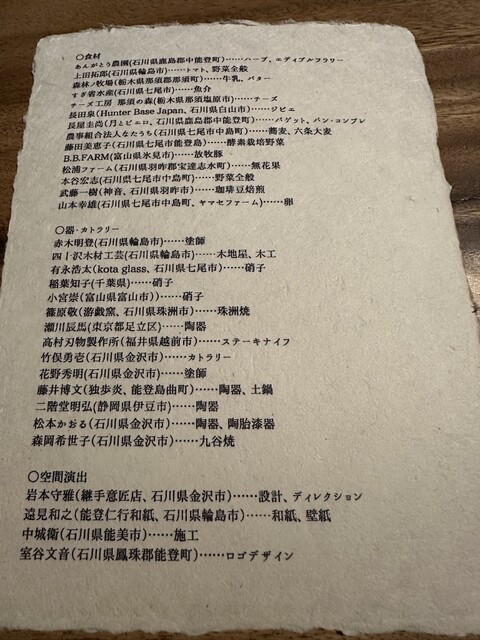 〇食材
あんがとう農園(石川県鹿島郡中能登町)……ハーブ、エディブルフラワー
上田拓郎(石川県輪島市)……トマト、野菜全般
森林ノ牧場(栃木県那須郡那須町)……牛乳、バター
すぎ省水産(石川県七尾市)……魚介
チーズ工房 那須の森(栃木県那須塩原市)……チーズ
長田泉(Hunter Base Japan、石川県白山市)……ジビエ
長屋圭尚(月とピエロ、石川県鹿島郡中能登町)……バゲット、パン・コンプレ
農事組合法人なたうち(石川県七尾市中島町)……蕎麦、六条大麦
藤田美恵子(石川県七尾市能登島)……酵素栽培野菜
B.B.FARM(富山県氷見市)……放牧豚
松浦ファーム(石川県羽咋郡宝達志水町)……無花果
本谷宏志(石川県七尾市中島町)……野菜全般
武藤一樹(神音、石川県羽咋市)……珈琲豆焙煎
山本幸雄(石川県七尾市中島町、ヤマセファーム)……卵
〇器・カトラリー
赤木明登(石川県輪島市)……塗師
四十沢木材工芸(石川県輪島市)……木地屋、木工
有永浩太(kota glass、石川県七尾市)……硝子
稲葉知子(千葉県)……硝子
小宮崇(富山県富山市))……硝子
篠原敬(游戯窯、石川県珠洲市)……珠洲焼
瀬川辰馬(東京都足立区)……陶器
高村刃物製作所(福井県越前市)……ステーキナイフ
竹俣勇壱(石川県金沢市)……カトラリー
花野秀明(石川県金沢市)……塗師
藤井博文(独歩炎、能登島曲町)……陶器、土鍋
二階堂明弘(静岡県伊豆市)……陶器
松本かおる(石川県金沢市)……陶器、陶胎漆器
森岡希世子(石川県金沢市)……九谷焼
〇空間演出
岩本守雅(継手意匠店、石川県金沢市)……設計、ディレクション
遠見和之(能登仁行和紙、石川県輪島市)……和紙、壁紙
中城衛(石川県能美市)……施工
室谷文音(石川県鳳珠郡能登町)……ロゴデザイン